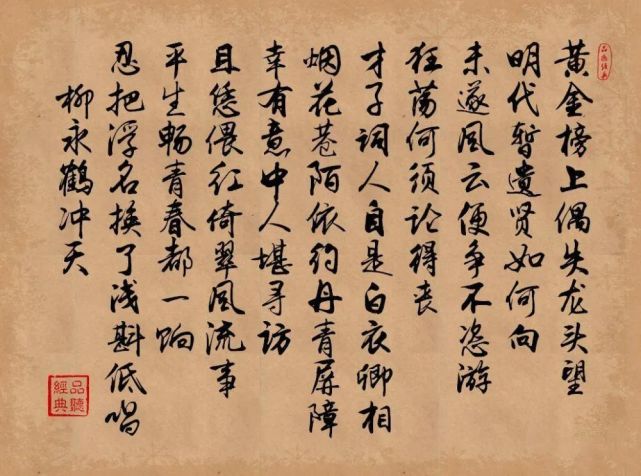 黃金榜上偶失龙头望
明代暫遗贤如何向
未遂风云便争不恣游
狂荡何须论得丧
才子词人自是白衣卿相
烟花巷陌依约丹青屏障
幸有意中人堪寻访
且恁偎红倚翠风流事
平生畅青春都一饷
忍把浮名换了浅斟低唱
柳永鹤冲天
品聽
經典